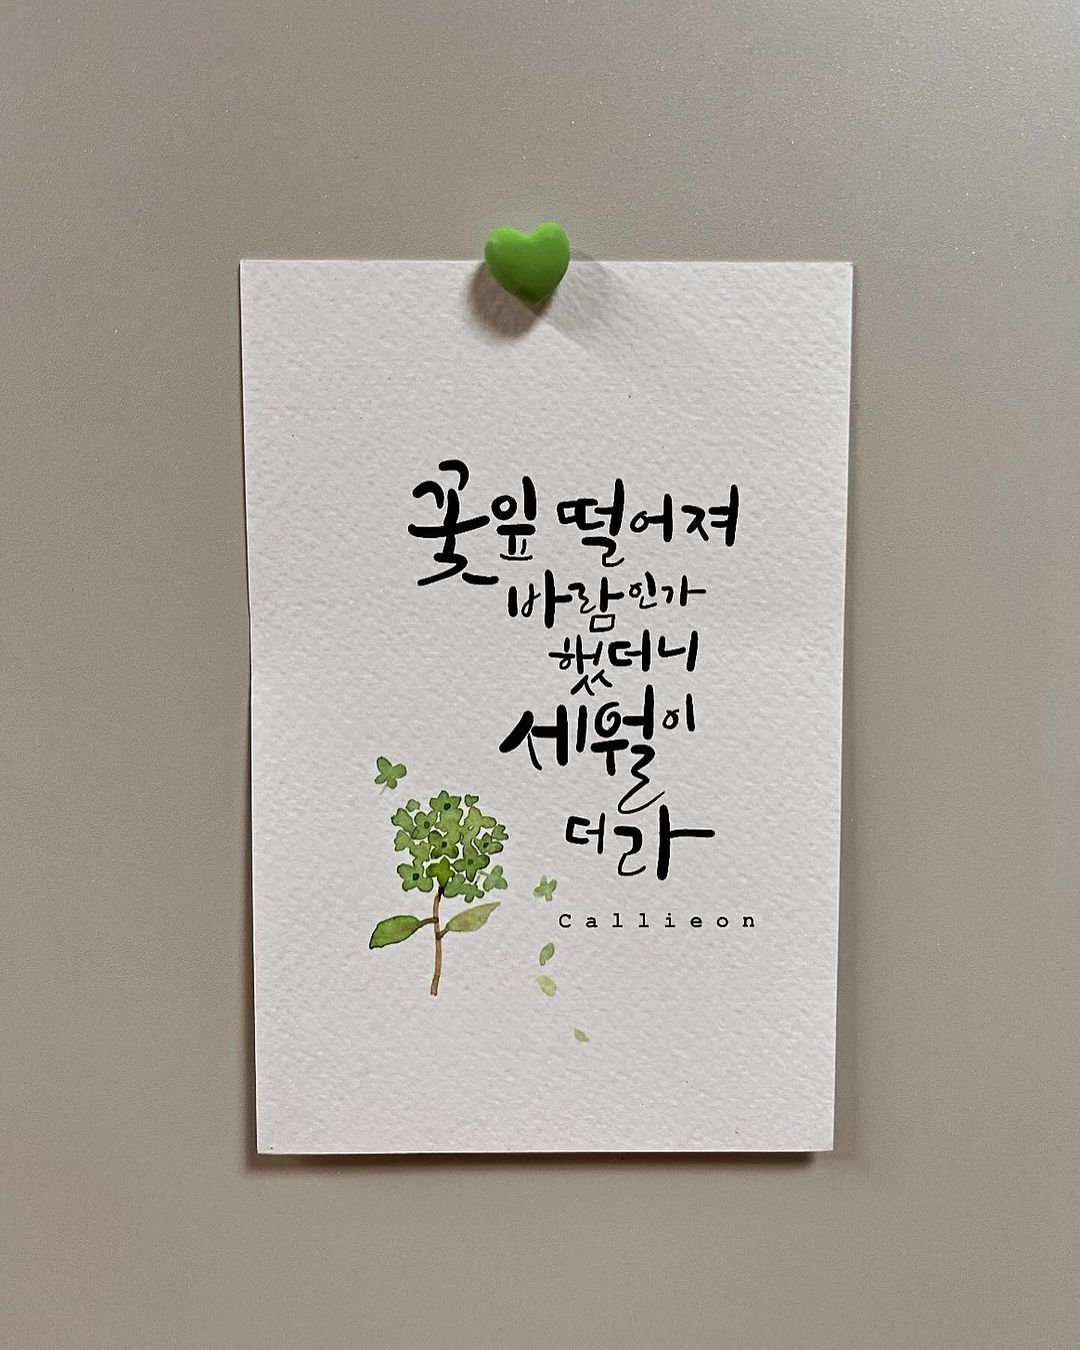 꽃잎 떨어져
바람인가
했더니
세월이
더라
Callieon